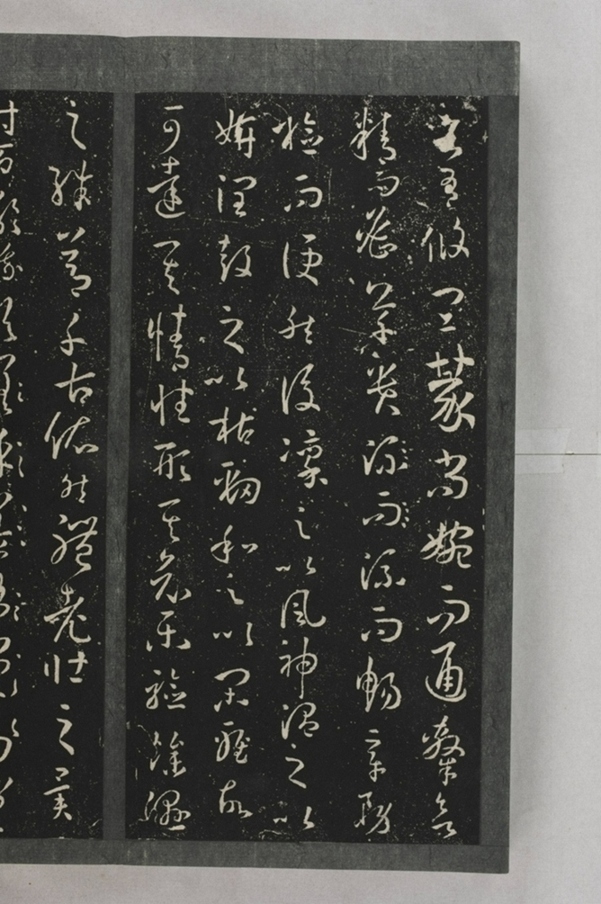 各有攸宜篆尚婉而通隸欲
精而密草貴流而流而暢章務
檢而便然後凜之以風神溫之以
妍潤鼓之以枯勁和之以閑雅故
可達其情性形其哀樂驗燥濕
之殊節千古依然體老壯之異
時百齡俄頃